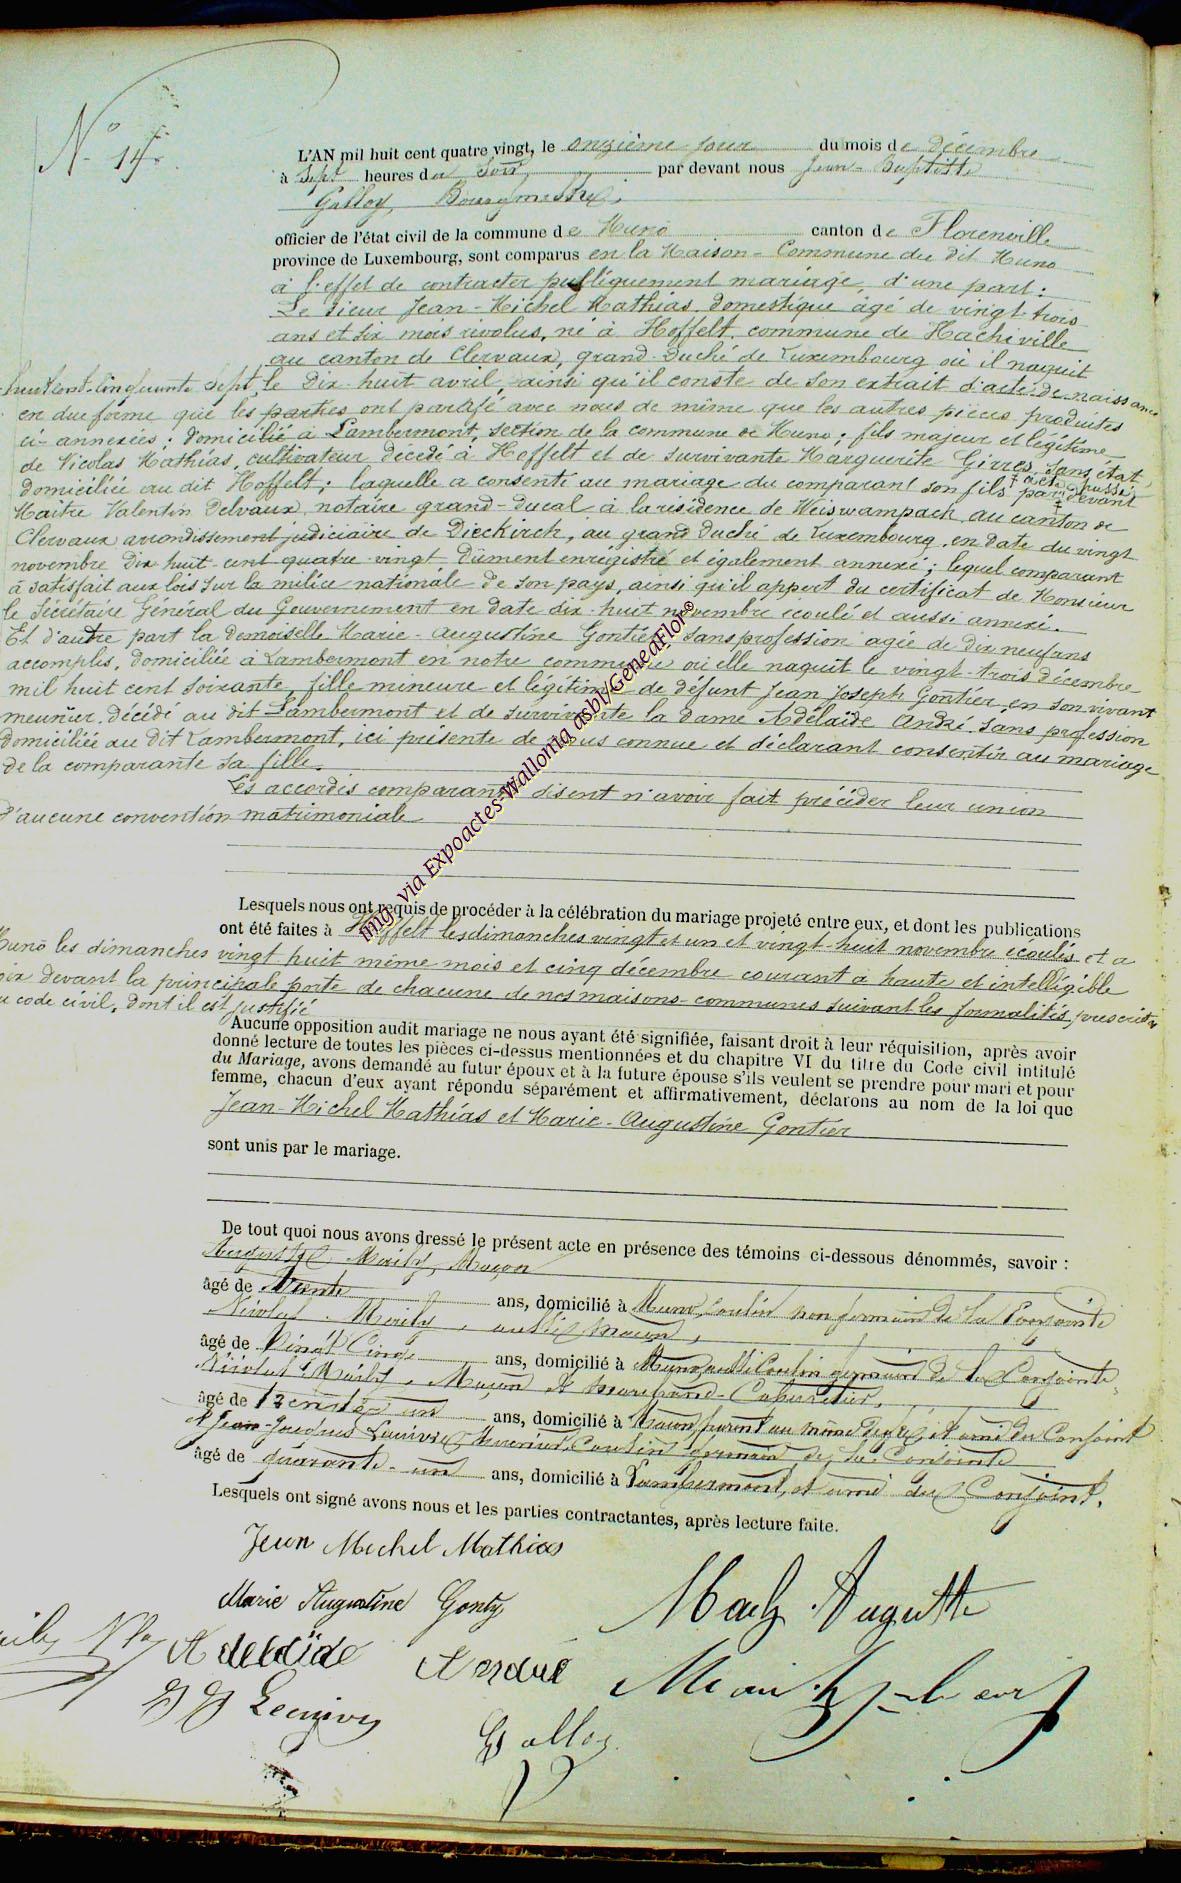 N° 14.
L'AN mil huit cent quatre vingt, le onzième jour du mois de décembre
à Sept heures du Soir, par devant nous Jean-Baptiste
Galloy, Bourgmestre,
officier de l'état civil de la commune de Muno canton de Florenville
province de Luxembourg, sont comparus en la Maison-Commune du dit Muno
à l'effet de contracter publiquement mariage, d'une part:
Le sieur Jean-Michel Mathias, domestique âgé de vingt trois
ans et six mois révolus, né à Hoffelt, commune de Hachiville
au canton de Clervaux, grand-Duché de Luxembourg où il naquit
huit cent-cinquante sept, le Dix-huit avril, ainsi qu'il conste de son extrait d'acte de naissance
en due forme que les parties ont parafé avec nous de même que les autres pièces produites
ci-annexées; domicilié à Lambermont, section de la commune de Muno; fils majeur et légitime
de Nicolas Mathias, cultivateur décédé à Hoffelt et de survivante Marguerite Girres, sans état,
domiciliée au dit Hoffelt; laquelle a consenti au mariage du comparant son fils par acte passé devant
Maître Valentin Delvaux, notaire grand-ducal à la résidence de Weiswampach, au canton de
Clervaux arrondissement judiciaire de Dieckirch, au grand Duché de Luxembourg, en date du vingt
novembre Dix huit-cent quatre-vingt Dûment enrégistré et également annexé; lequel comparant
à satisfait aux lois sur la milice nationale de son pays, ainsi qu'il appert du certificat de Monsieur
le Sécrétaire Général du Gouvernement en date dix-huit novembre écoulé et aussi annexé.
Et d'autre part la demoiselle Marie-Augustine Gontier, sans profession âgée de dix neuf ans
accomplis, domiciliée à Lambermont en notre commune où elle naquit le vingt-trois décembre
mil huit cent soixante, fille mineure et légitime de défunt Jean Joseph Gontier, en son vivant
meunier, décédé au dit Lambermont et de survivante la dame Adélaïde André, sans profession
domiciliée au dit Lambermont, ici présente de nous connue et déclarant consentir au mariage
de la comparante sa fille.
Les accordés comparants disent n'avoir fait précéder leur union
d'aucune convention matrimoniale
Lesquels nous ont requis de procéder à la célébration du mariage projeté entre eux, et dont les publications
ont été faites à Hoffelt les dimanches vingt et un et vingt-huit novembre écoulés et a
Muno les dimanches vingt huit même mois et cinq décembre courant à haute et intelligible
voix devant la principale porte de chacune de nos maisons-communes suivant les formalités prescrites
au code civil, dont il est justifié
Aucune opposition audit mariage ne nous ayant été signifiée, faisant droit à leur réquisition, après avoir
donné lecture de toutes les pièces ci-dessus mentionnées et du chapitre VI du titre du Code civil intitulé
du Mariage, avons demandé au futur époux et à la future épouse s'ils veulent se prendre pour mari et pour
femme, chacun d'eux ayant répondu séparément et affirmativement, déclarons au nom de la loi que
Jean-Michel Mathias et Marie-Augustine Gontier
sont unis par le mariage.
De tout quoi nous avons dressé le présent acte en présence des témoins ci-dessous dénommés, savoir :
Auguste Mailly, Maçon
âgé de Trente ans, domicilié à Muno, Cousin non germain de la Conjointe
Nicolas Mailly, aussi maçon,
âgé de Vingt Cinq ans, domicilié à Muno, aussi Cousin germain de la Conjointe,
Nicolas Mailly, Maçon et marchand-Cabaretier,
âgé de trente un ans, domicilié à parent au même degré, et ami du Conjoint
et Jean-Jacques Cousin germain de la Conjointe
âgé de quarante-un ans, domicilié à Lambermont, et ami du Conjoint.
Lesquels ont signé avons nous et les parties contractantes, après lecture faite.
Jean Michel Mathias
Marie Augustine Gonty
Adelaïde André
Galloy
img. via Expoactes-Wallonia asbl/GeneaFlor®